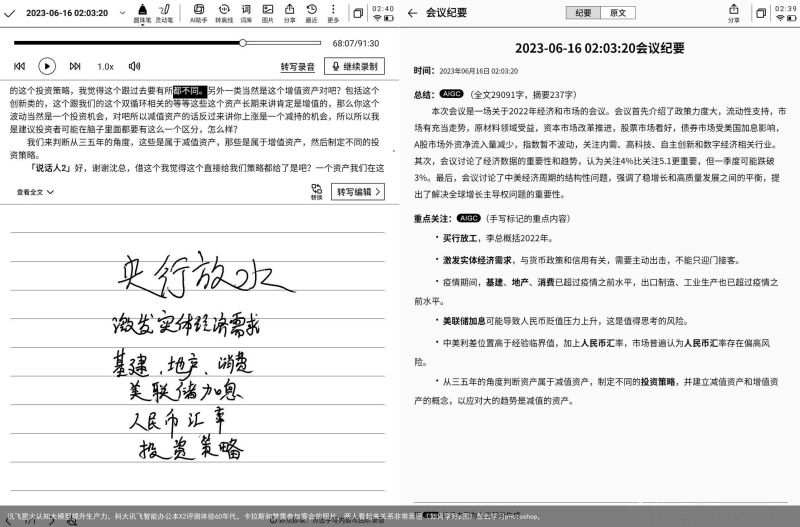 2023-06-16 02:03:20
圆珠笔
灵动笔
AI助手
转离线
词库
图片
分享
最近
更多
02:40
68:07/91:30
1.0x
转写录音
继续录制
的这个投资策略，我觉得这个跟过去要有所都不同。另外一类当然是这个增值资产对吧？包括这个
创新类的，这个跟我们的这个双循环相关的等等这些这个资产长期来讲肯定是增值的，那么你这个
波动当然是一个投资机会，对吧所以减值资产的话反过来讲你上涨是一个减持的机会，所以所以我
是建议投资者可能在脑子里面都要有这么一个区分，怎么样？
我们来判断从三五年的角度，这些是属于减值资产，那些是属于增值资产，然后制定不同的投
资策略。
「说话人2」好，谢谢沈总，借这个我觉得这个直接给我们策略都给了是吧？一个资产我们在这
查看全文
替换
转写编辑
央行放水
激发实体经济需求
基建、地产、消费
美联储加息
人民币汇率
投资策略
会议纪要
纪要
原文
分享
02:39
2023-06-16 02:03:20会议纪要
时间：2023年06月16日 02:03:20
总结：AIGC（全文29091字，摘要237字）
本次会议是一场关于2022年经济和市场的会议。会议首先介绍了政策力度大，流动性支持，市
场有充当走势，原材料领域受益，资本市场改革推进，股票市场看好，债券市场受美国加息影响，
A股市场外资净流入量减少，指数暂不波动，关注内需、高科技、自主创新和数字经济相关行业。
其次，会议讨论了经济数据的重要性和趋势，认为关注4%比关注5.1更重要，但一季度可能跌破
3%。最后，会议讨论了中美经济周期的结构性问题，强调了稳增长和高质量发展之间的平衡，提
出了解决全球增长主导权问题的重要性。
重点关注：AIGC（手写标记的重点内容）
• 买行放工，李总概括2022年。
• 激发实体经济需求，与货币政策和信用有关，需要主动出击，不能只迎门接客。
• 疫情期间，基建、地产、消费已超过疫情之前水平，出口制造、工业生产也已超过疫情之
前水平。
• 美联储加息可能导致人民币贬值压力上升，这是值得思考的风险。
• 中美利差位置高于经验临界值，加上人民币汇率，市场普遍认为人民币汇率存在偏高风
险。
• 从三五年的角度判断资产属于减值资产，制定不同的投资策略，并建立减值资产和增值资
产的概念，以应对大的趋势是减值的资产。
讯飞星火认知大模型提升生产力，科大讯飞智能办公本X2评测体验60年代，卡拉斯和梦露参加宴会的照片，两人看起来关系非常亲密（如何学好p图？怎么学习photoshop，